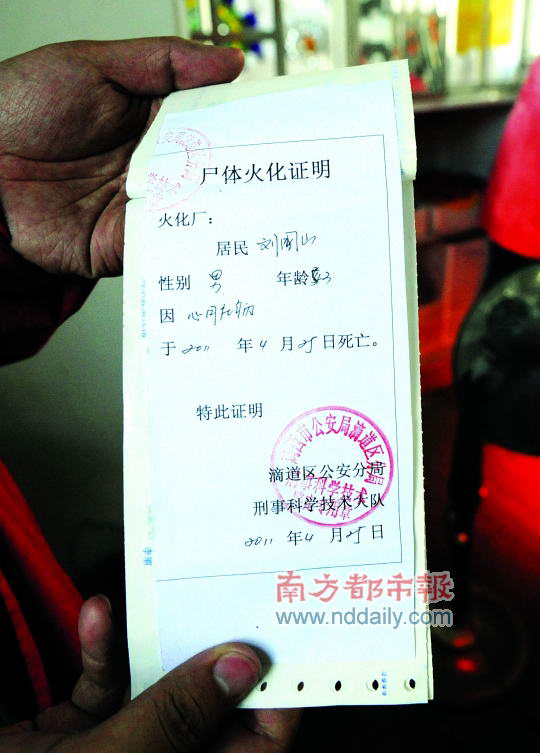 尸体火化证明
火化厂：
居民 刘国山
性别 男 年龄
因 心
于 2011 年 4 月 25 日死亡。
特此证明
鸡西市公安局滴道区分局
刑事科学技术
滴道区公安分局
刑事科学技术大队
2011 年 4 月 25 日
南方都市報
www.nddaily.com